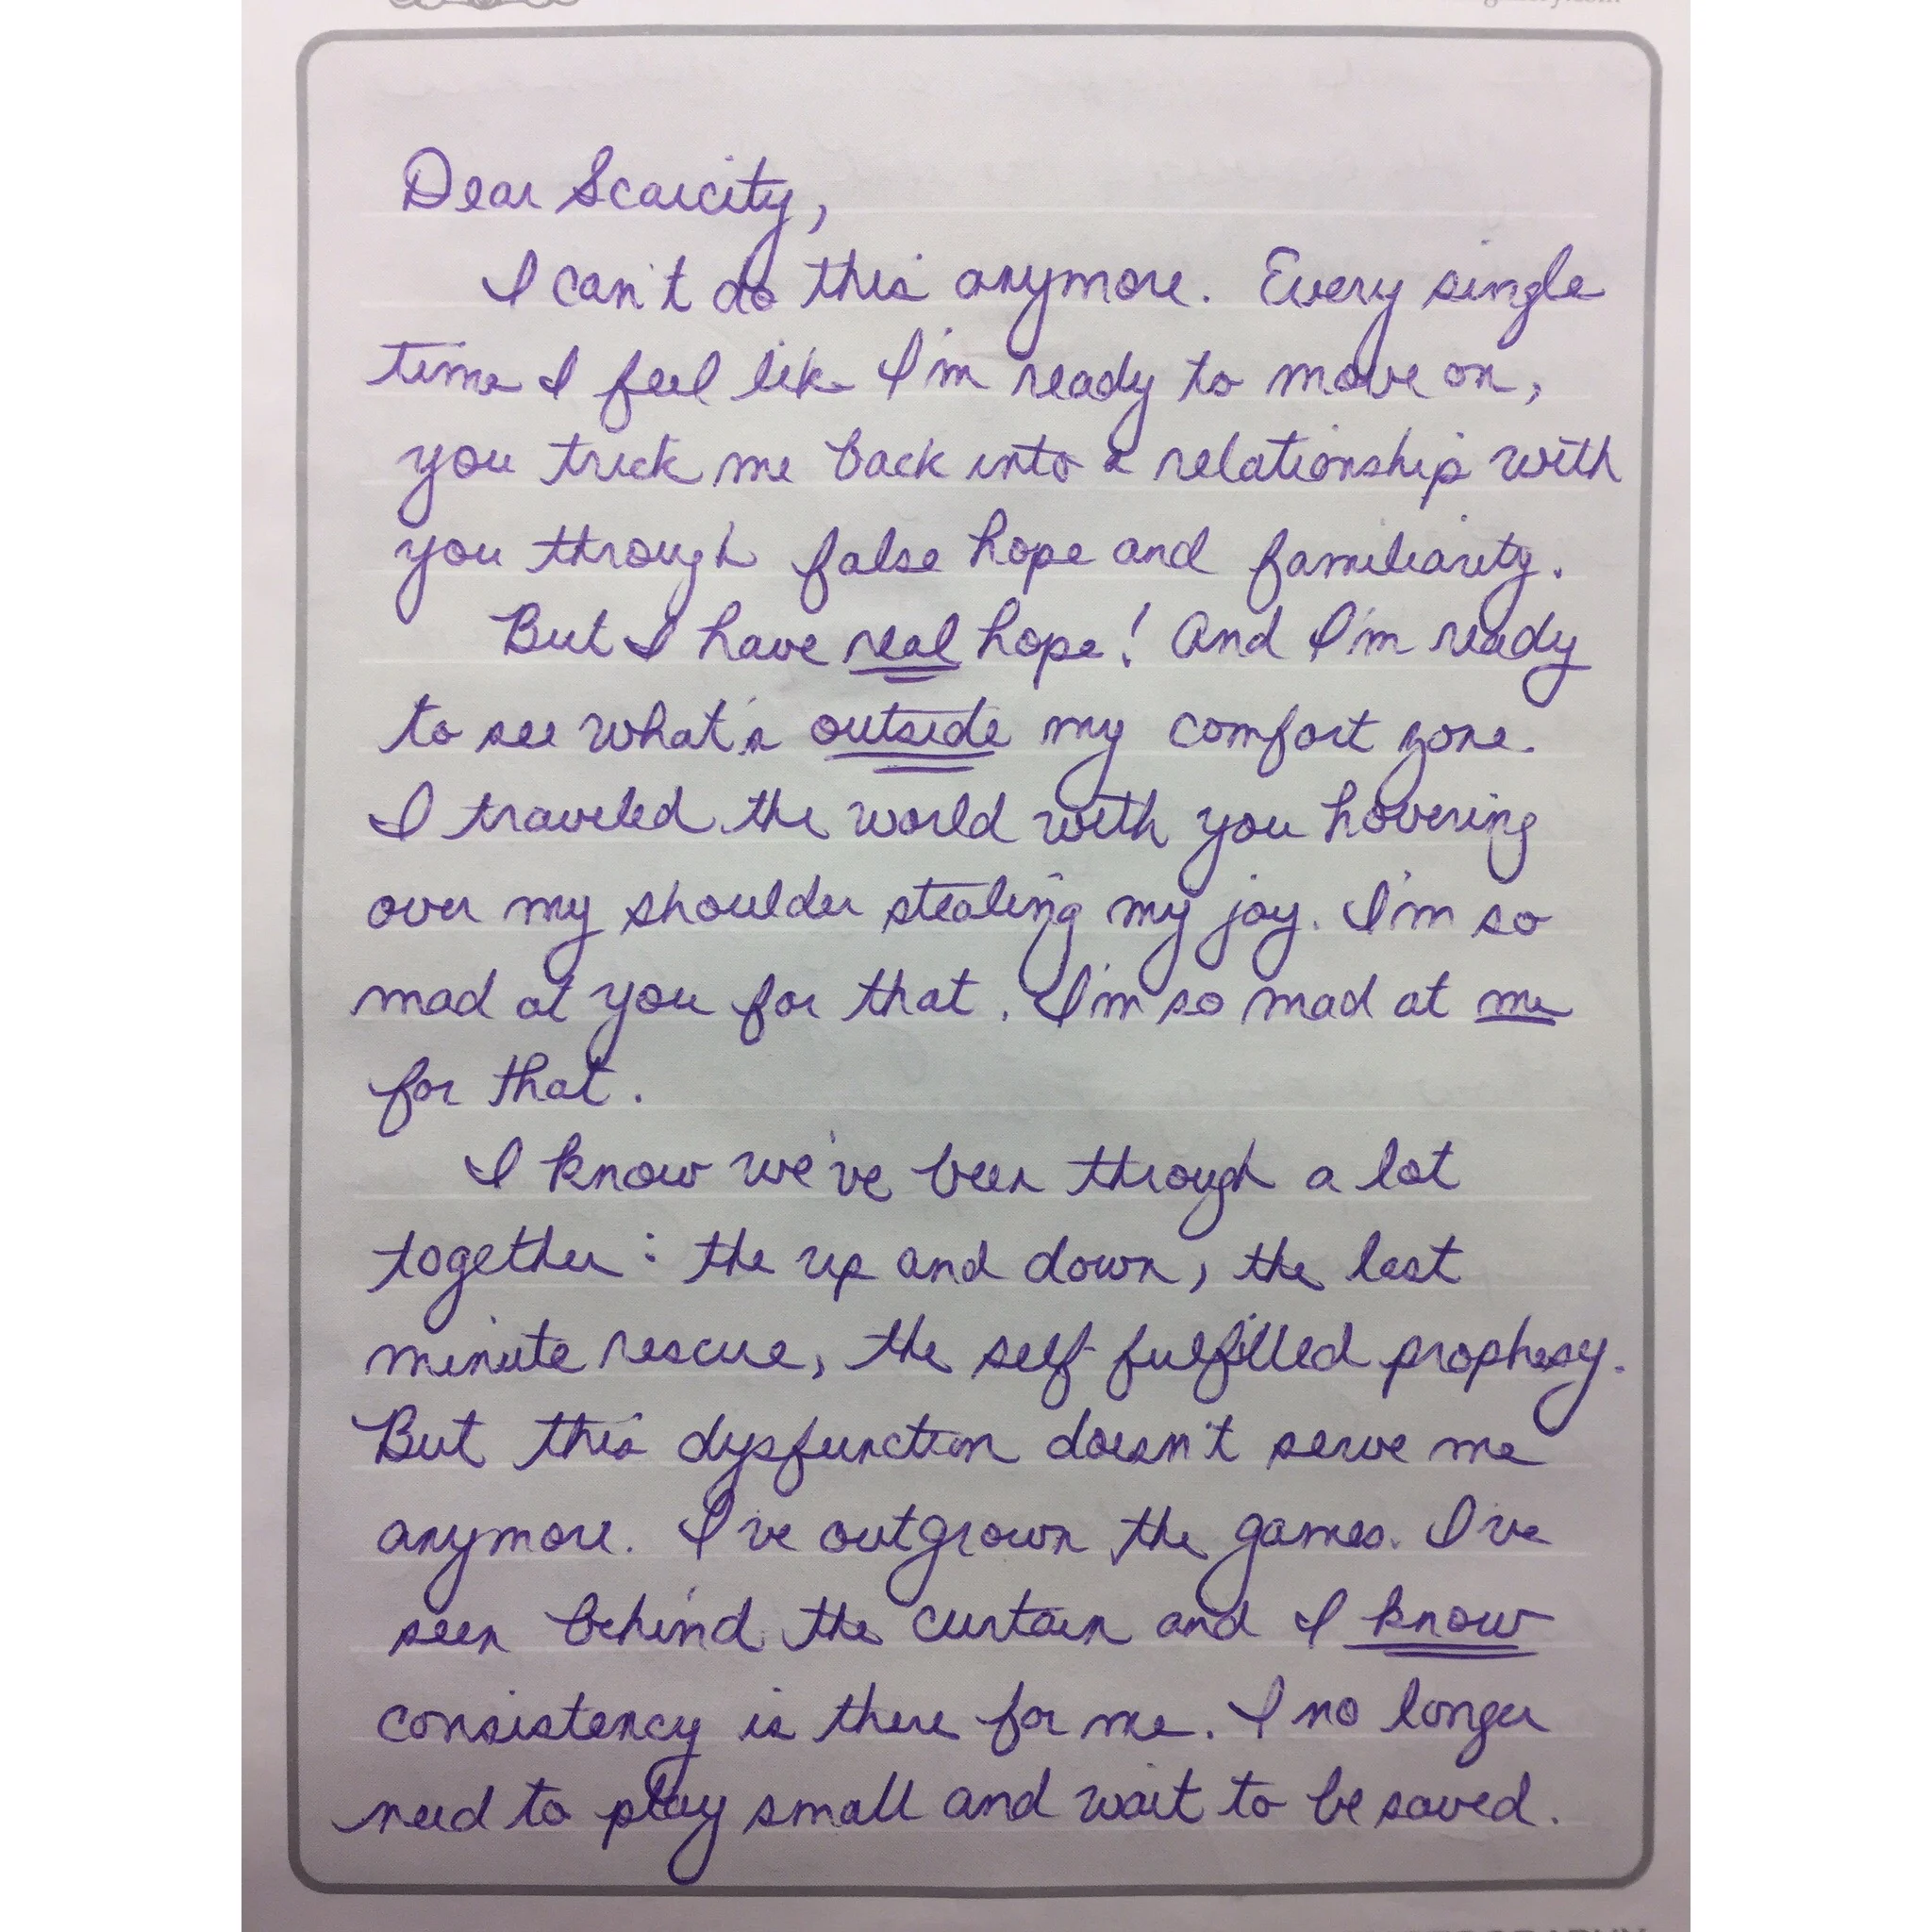 Dear Scarcity,
I can't do this anymore. Every single
time I feel like I'm ready to move on,
you trick me back into a relationship with
you through false hope and familiarity.
But I have real hope! And I'm ready
to see what's outside my comfort zone.
I traveled the world with you hovering
over my shoulder stealing my joy. I'm so
mad at you for that. I'm so mad at me
for that.
I know we've been through a lot
together: the up and down, the last
minute rescue, the self-fulfilled prophesy.
But this dysfunction doesn't serve me
anymore. I've outgrown the games. I've
seen behind the curtain and I know
consistency is there for me. I no longer
need to play small and wait to be saved.